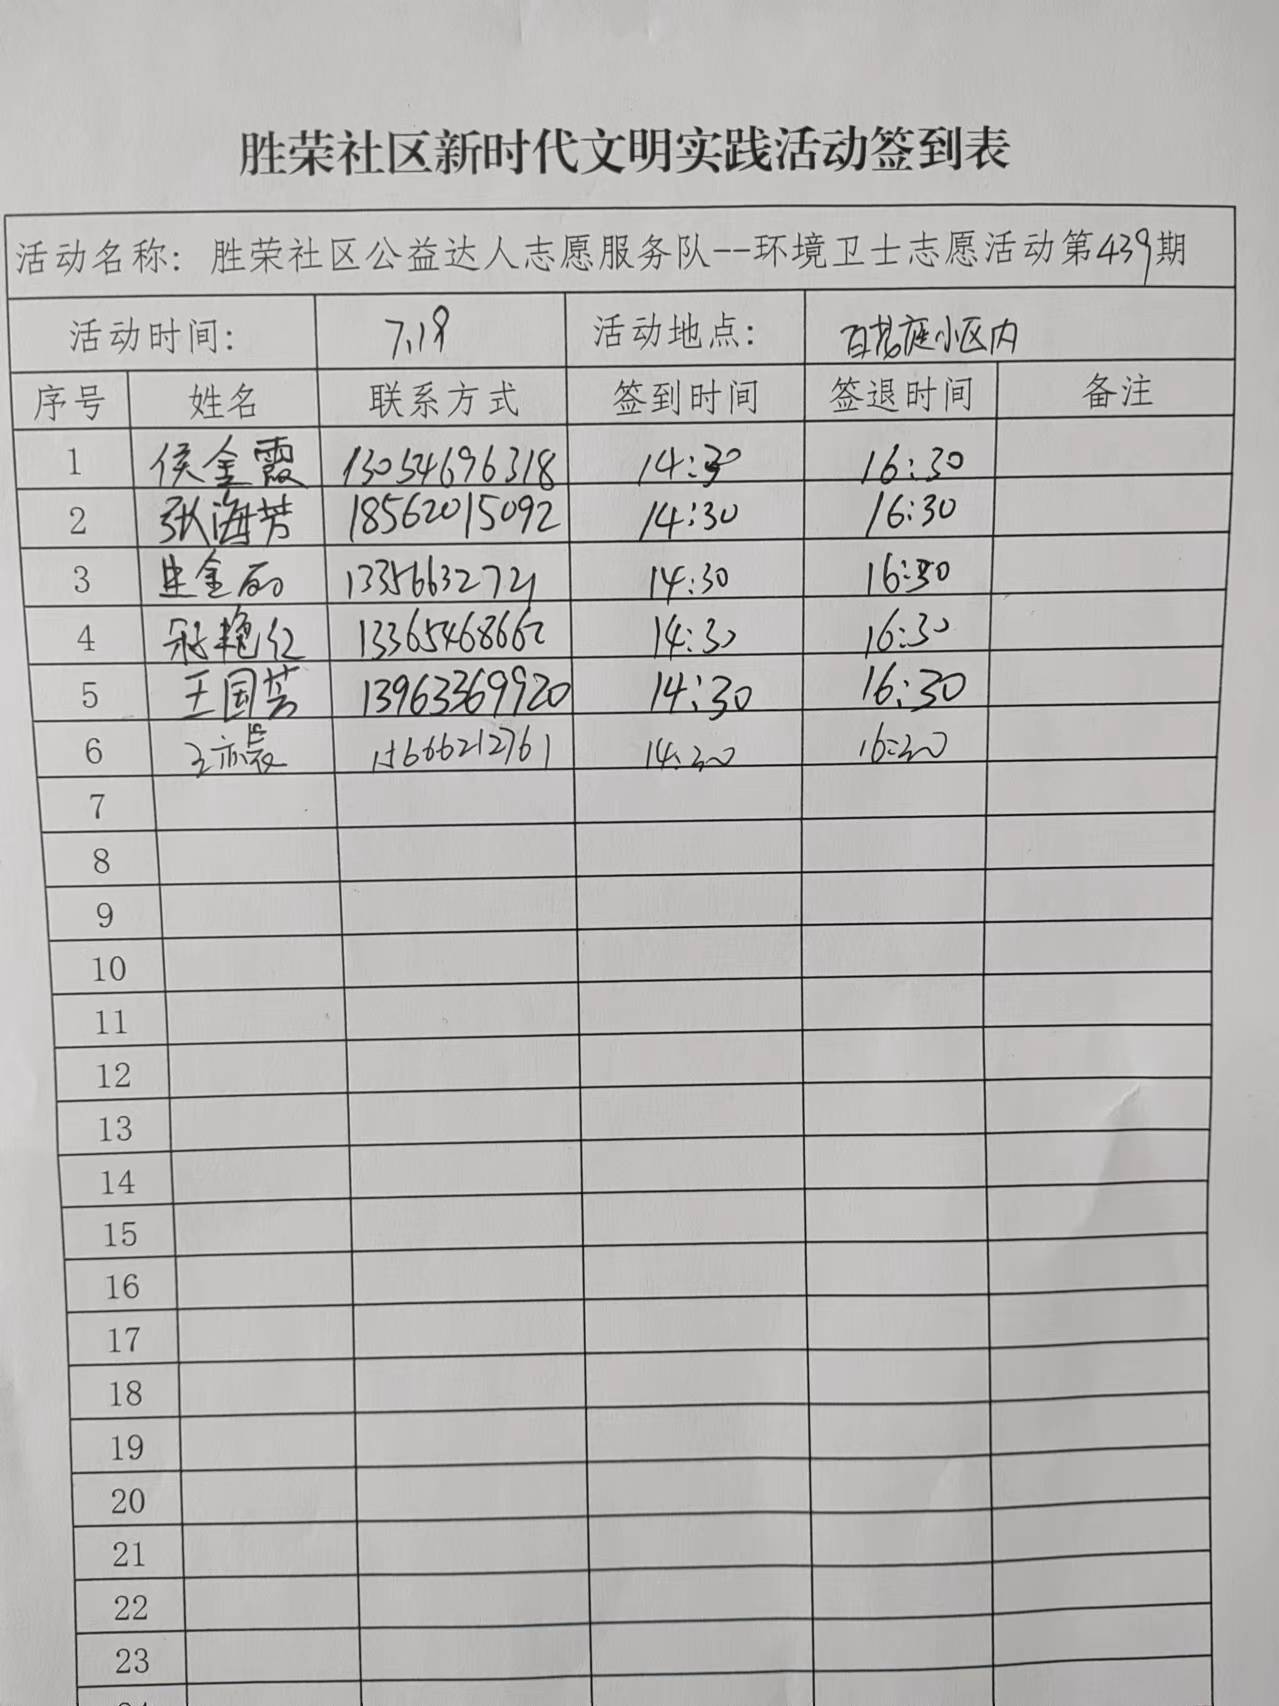 胜荣社区新时代文明实践活动签到表
活动名称：胜荣社区公益达人志愿服务队--环境卫士志愿活动第439期
活动时间： 7.19 活动地点： 百花庭小区内
序号 姓名 联系方式 签到时间 签退时间 备注
1 侯金霞 13054696318 14:30 16:30
2 张海芳 18562015092 14:30 16:30
3 13356632721 14:30 16:30
4 艳红 13365468662 14:30 16:30
5 王国芳 13963369920 14:30 16:30
6 15666212761 14:30 16:30
7
8
9
10
11
12
13
14
15
16
17
18
19
20
21
22
23